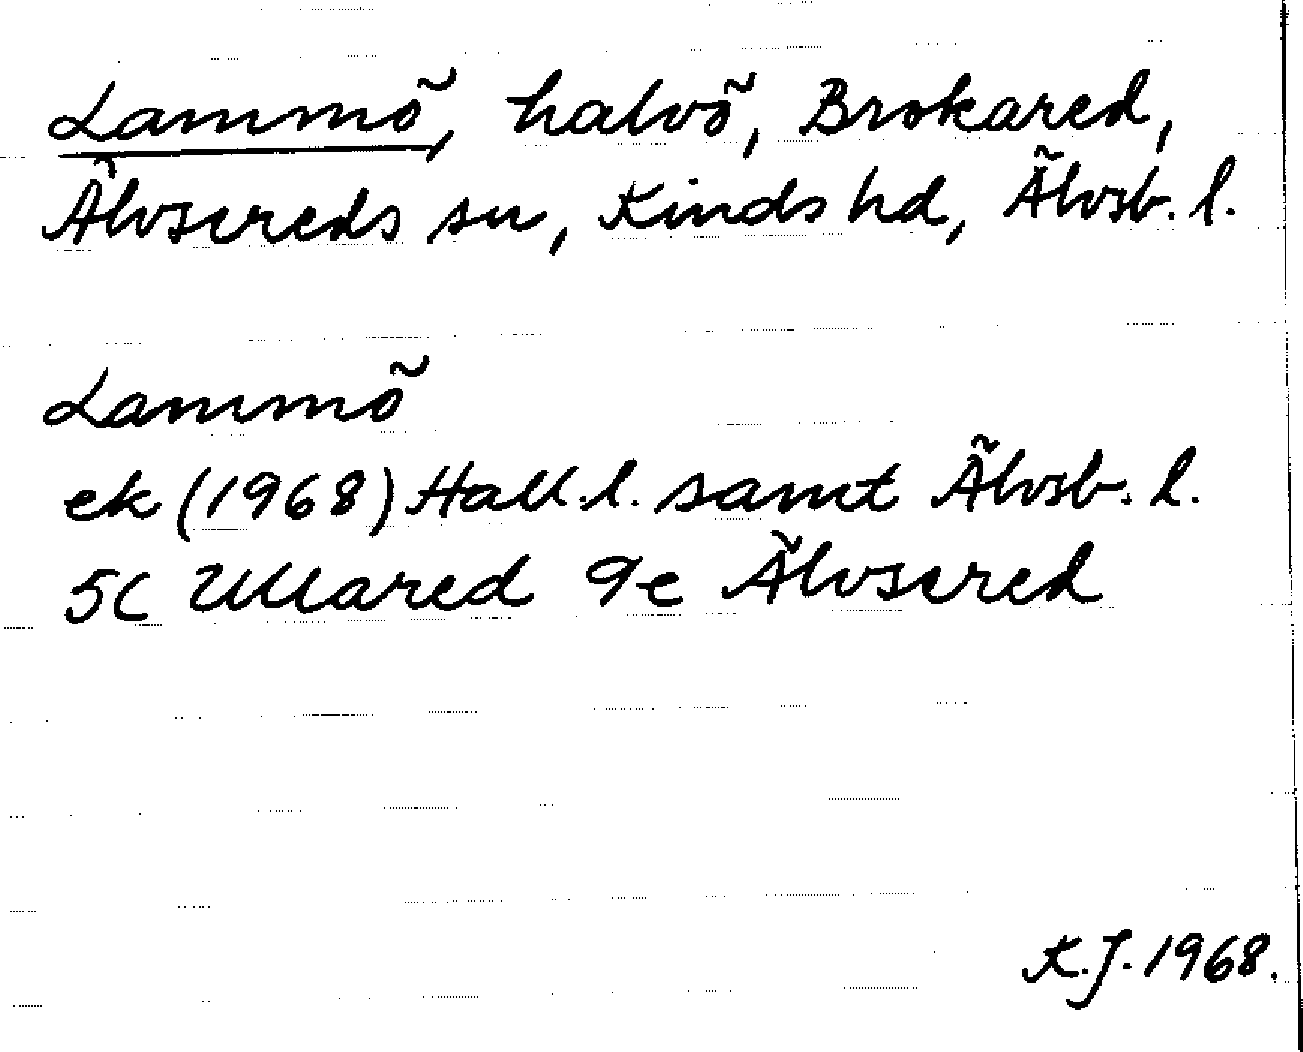 Lammö, halvö, Brokared,
Älvsereds sn, Kinds hd, Älvsb. l.
Lammö
ek (1968) Hall. l. samt Älvsb. l.
5C Ullared 9e Älvsered
K.J. 1968.